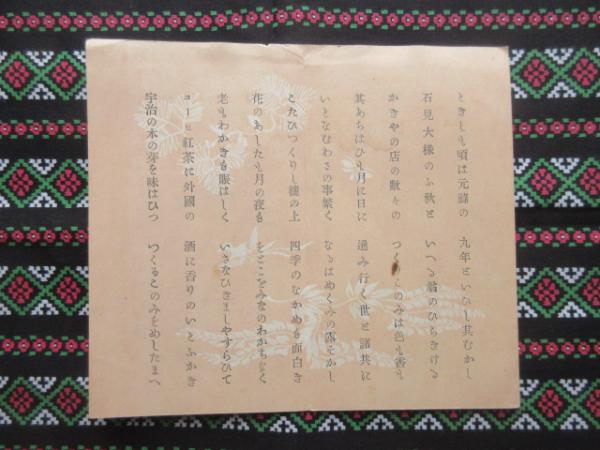 ときしも頃は元祿の 九年といひし其むかし
石見大掾のふ秋と いへる翁のひらきける
かきやの店の數々の つくりこのみは色も香も
其あちはひも月に日に 進み行く世と諸共に
いとなむわさの事繁く なるはめくみの露そかし
こたひつくりし樓の上 四季のなかめも面白き
花のあしたも月の夜も をとこをみなのわかちなく
老もわかきも賑はしく いさなひきましやすらひて
コーヒ紅茶に外國の 酒に香りのいとふかき
宇治の木の芽を味はひつ つくるこのみをめしたまへ